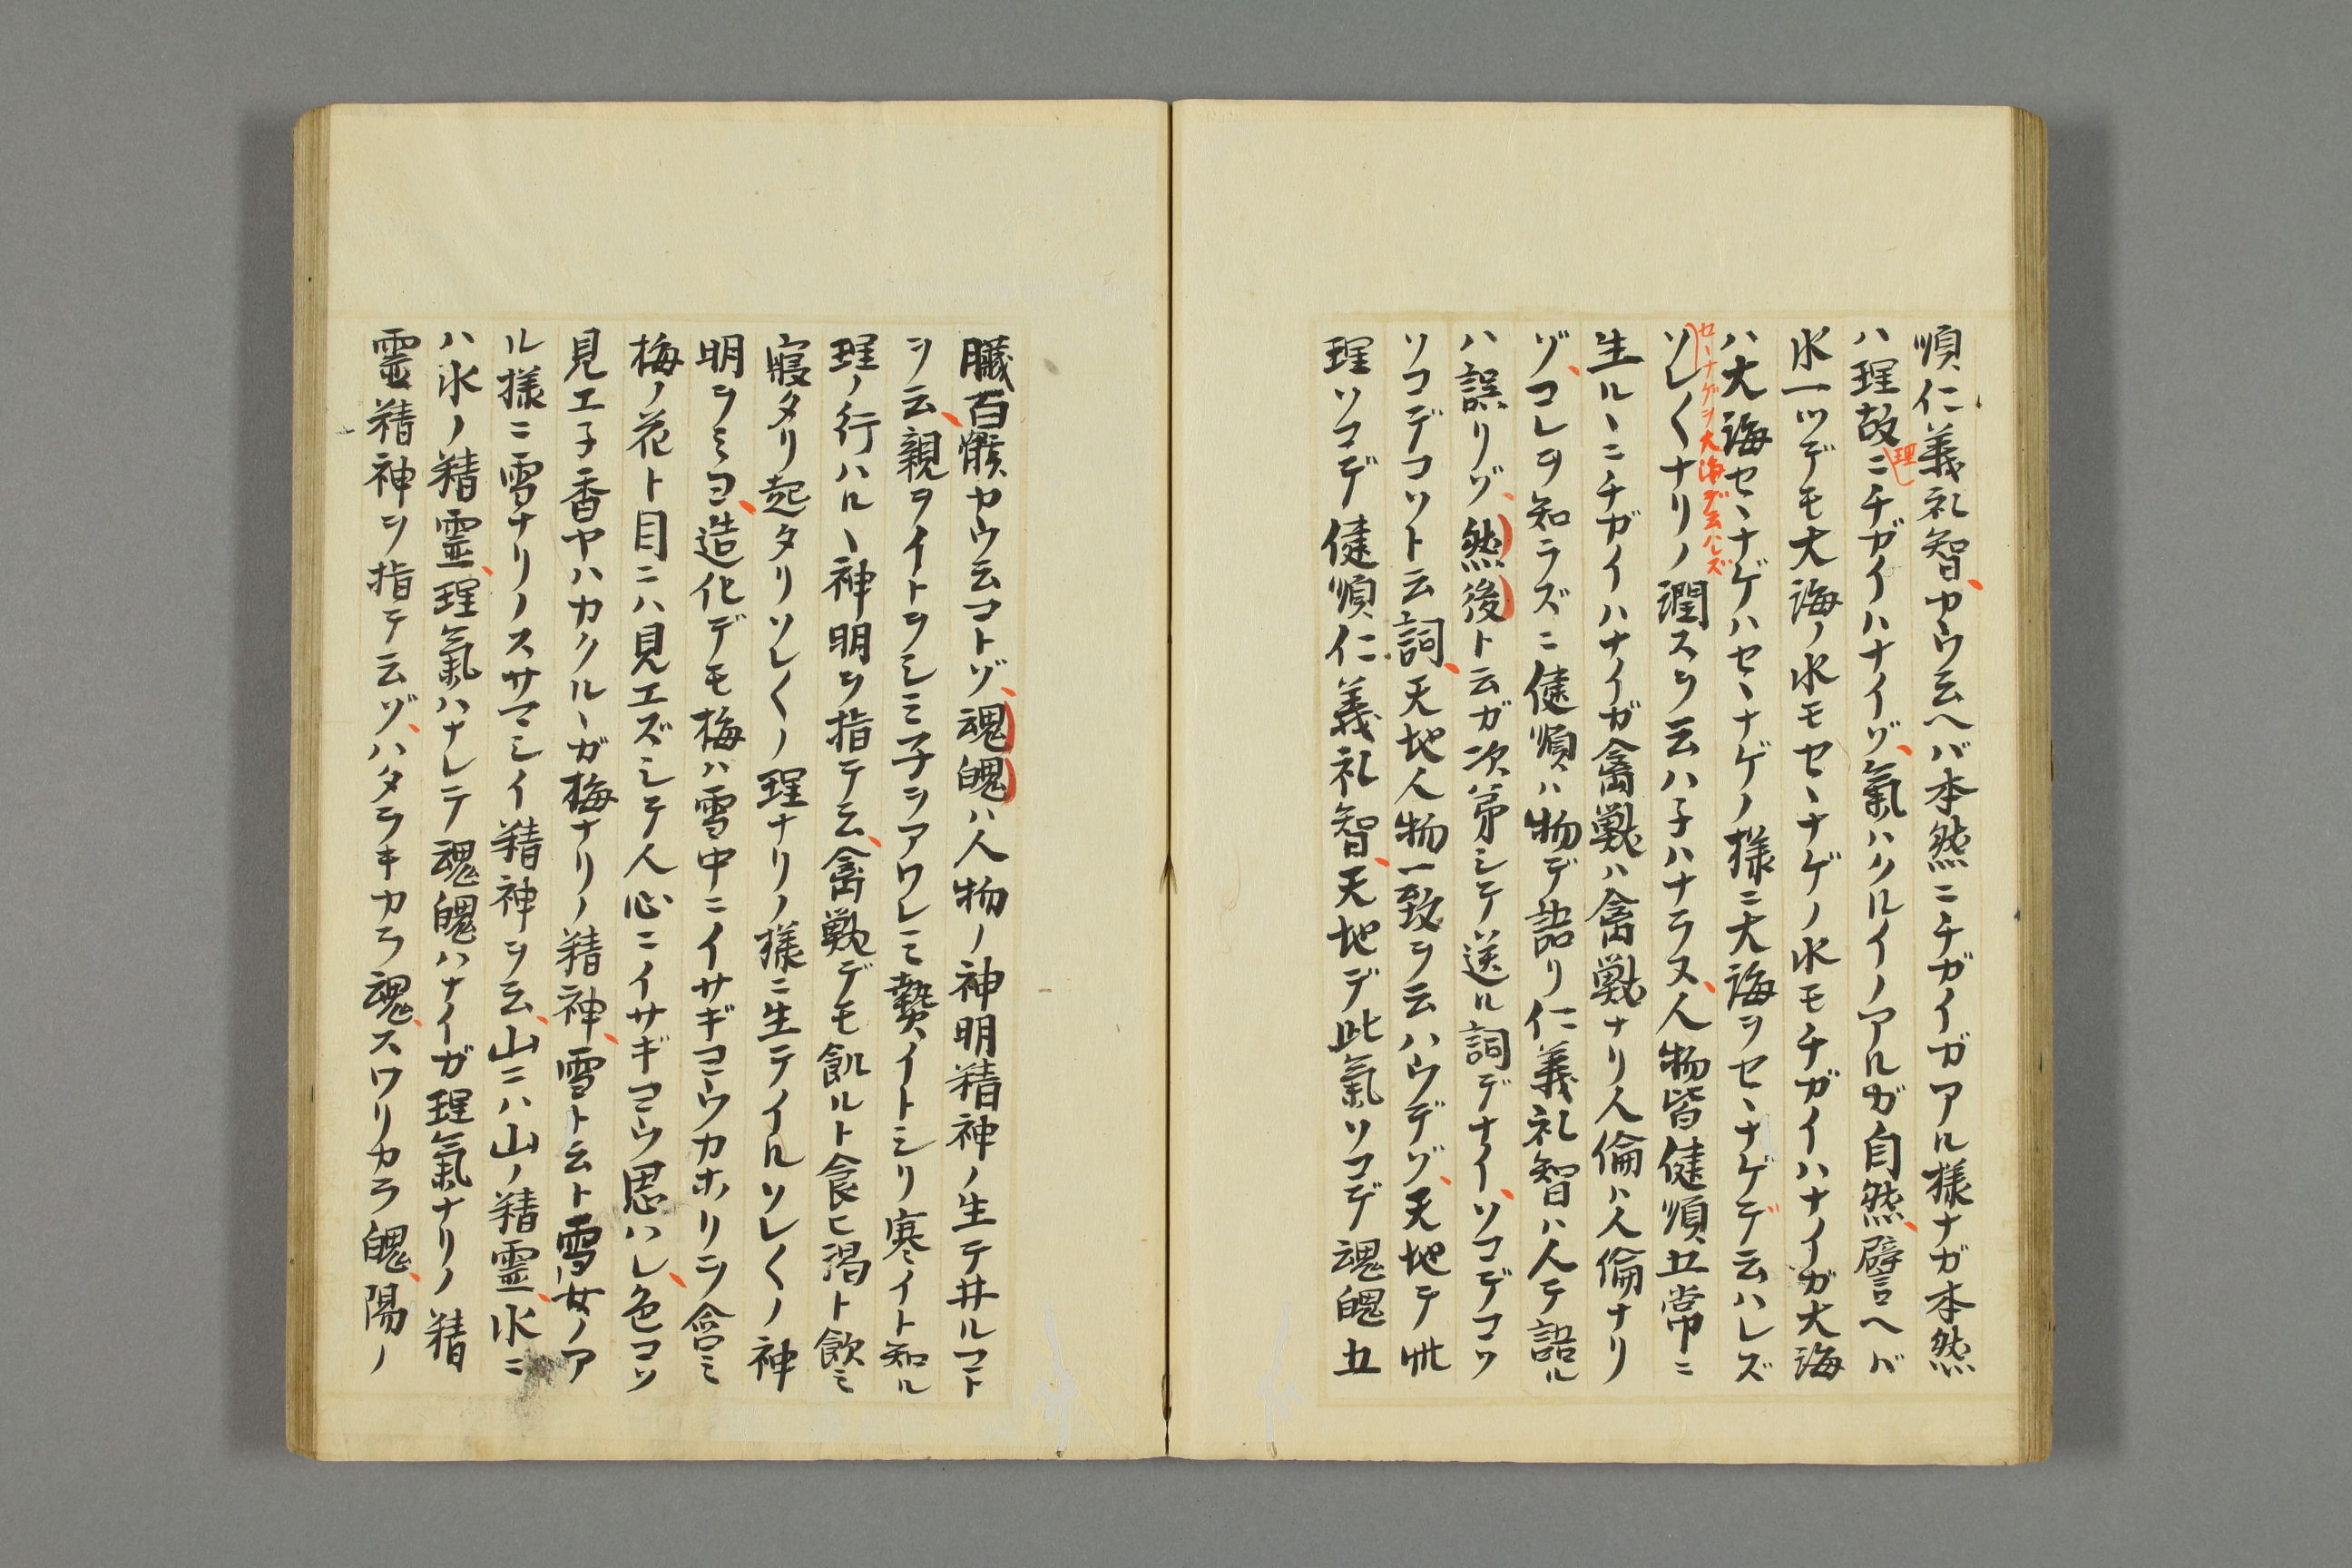 順、仁義礼智、カウ云ヘバ本然ニチガイガアル様ナガ本然
ハ理故ニチガイハナイゾ、氣ハクルイノアルガ自然、譬ヘバ
理
水一ツデモ大海ノ水モセヽナゲノ水モチガイハナイガ大海
ハ大海セヽナゲハセヽナゲノ様ニ大海ヲセヽナゲデ云ハレズ
セヽナゲヲ大海デ云ハレズ
ソレ〱ナリノ潤スヲ云ハ子ハナラヌ、人物皆健順五常ニ
生ルヽニチガイハナイガ禽獣ハ禽獣ナリ人倫ハ人倫ナリ
ゾ、コレヲ知ラズニ健順ハ物デ語リ仁義礼智ハ人テ語ル
ハ誤リゾ、然後ト云ガ次第シテ送ル詞デナイ、ソコデコソ
ソコデコソト云詞、天地人物一致ヲ云ハウデゾ、天地テ此
理ソコデ健順仁義礼智、天地デ此氣ソコデ魂魄五
臓百骸カウ云コトゾ、魂魄ハ人物ノ神明精神ノ生テ井ルコト
ヲ云、親ヲイトヲシミ子ヲアワレミ𤍠イトシリ寒イト知ル
理ノ行ハルヽ神明ヲ指テ云、禽獣デモ飢ルト食ヒ渇ト飲ミ
寢タリ起タリソレ〱ノ理ナリノ様ニ生テイルソレ〱ノ神
明ヲミヨ、造化デモ梅ハ雪中ニイサギヨウカホリヲ含ミ
梅ノ花ト目ニハ見エズシテ人心ニイサギヨウ思ハレ、色コソ
見エ子香ヤハカクルヽガ梅ナリノ精神、雪ト云ト雪女ノア
ル様ニ雪ナリノスサマシイ精神ヲ云、山ニハ山ノ精霊、水ニ
ハ水ノ精霊、理氣ハナレテ魂魄ハナイガ理氣ナリノ精
霊精神ヲ指テ云ゾ、ハタラキカラ魂、スワリカラ魄、陽ノ